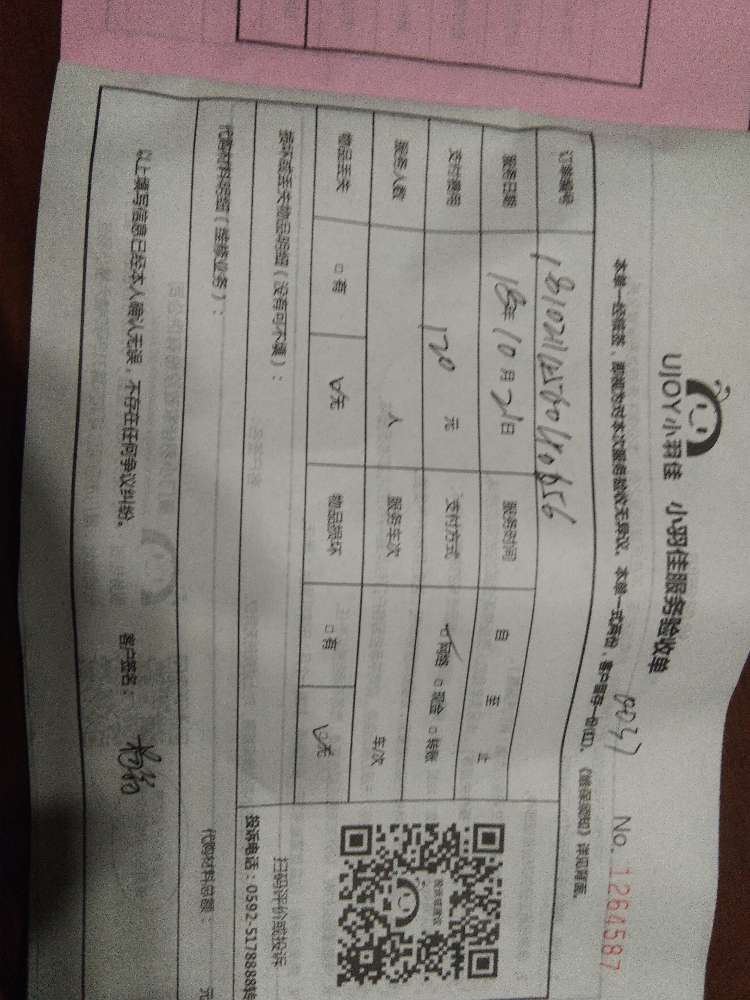 UJOY小羽佳 小羽佳服务验收单 0037 No. 1264587
本单一经签签，即视为对本次服务验收无异议。本单一式两份，客户留存一份(红)。《维保须知》详见背面。
订单编号
服务日期 18年 10月 21日 服务时间 自 至 止
支付费用 120 元 支付方式 网络 □ 现金 □ 转账
服务人数 人 服务车次 车/次
物品丢失 □ 有 无 物品损坏 □ 有 无
损坏或丢失物品明细（没有可不填）：
扫码评价或投诉
投诉电话：0592-5178888转
代购材料明细（维修业务）： 代购材料总额： 元
以上填写信息已经本人确认无误，不存在任何争议纠纷。 客户签名：